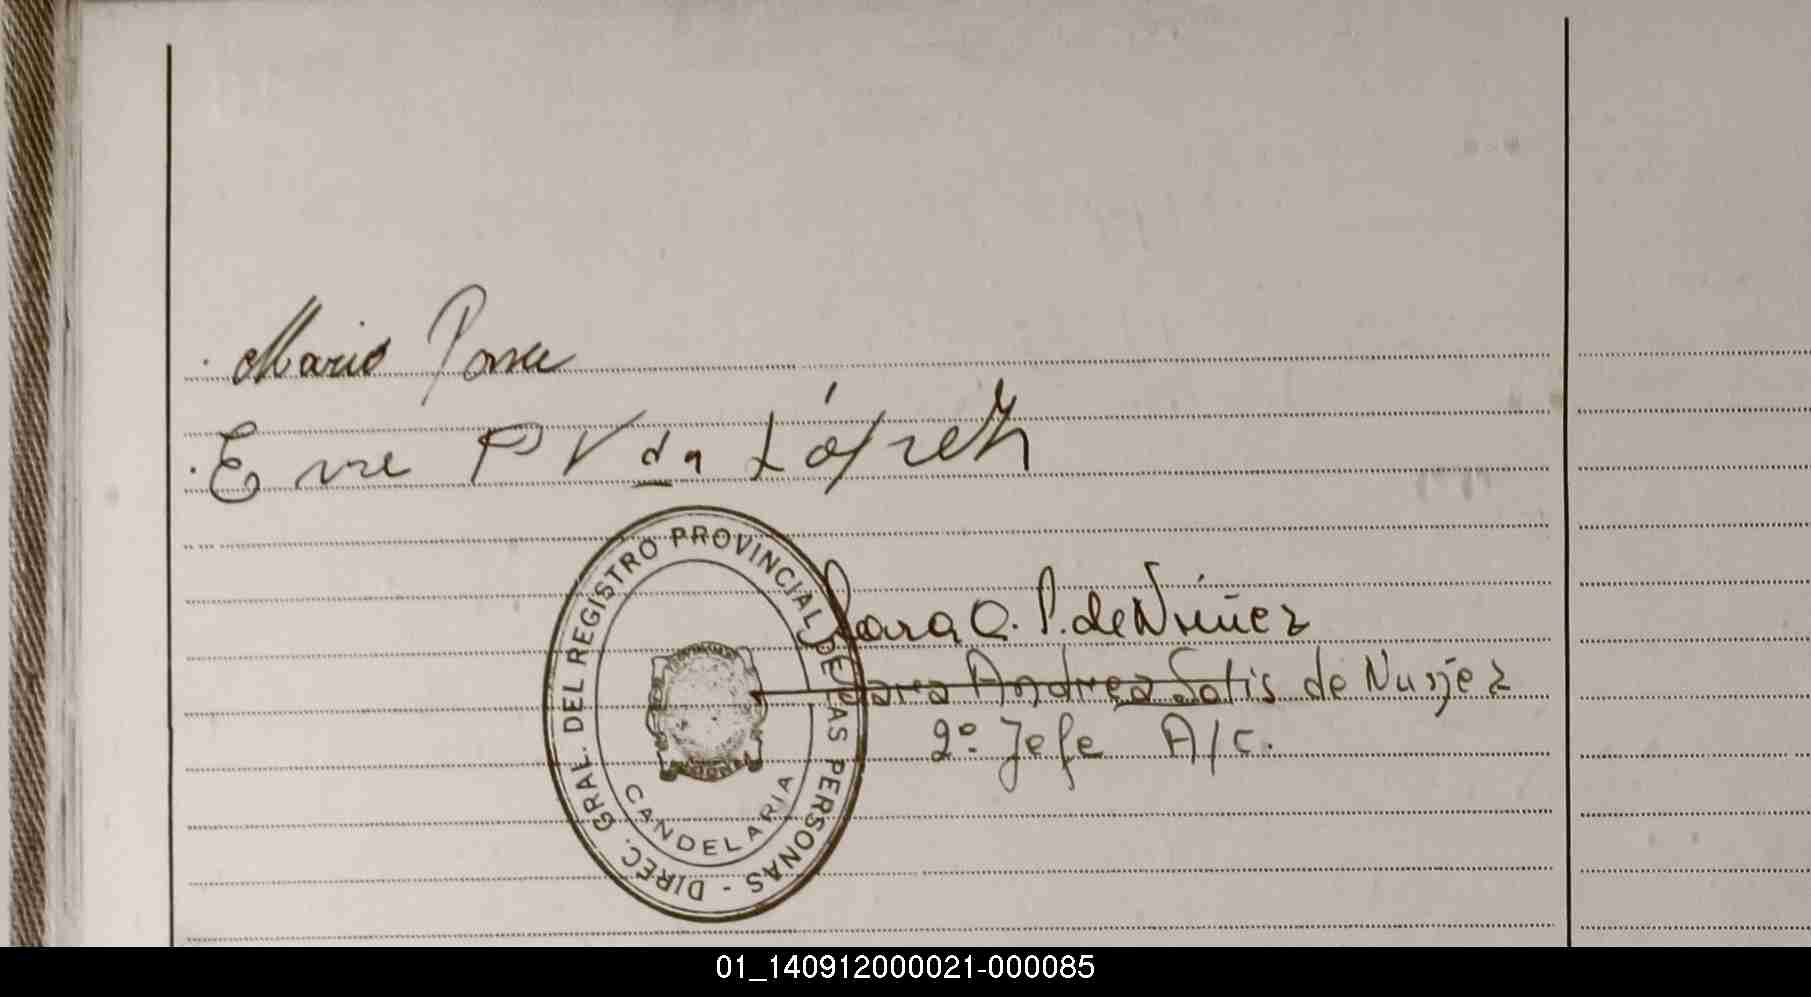 Mario Ponce
E P Vda López
DIREC. GRAL. DEL REGISTRO PROVINCIAL DE LAS PERSONAS -
CANDELARIA
Sara A. S. de Núñez
Sara Andrea Solis de Nuñez
2º Jefe A/c.
01_140912000021-000085